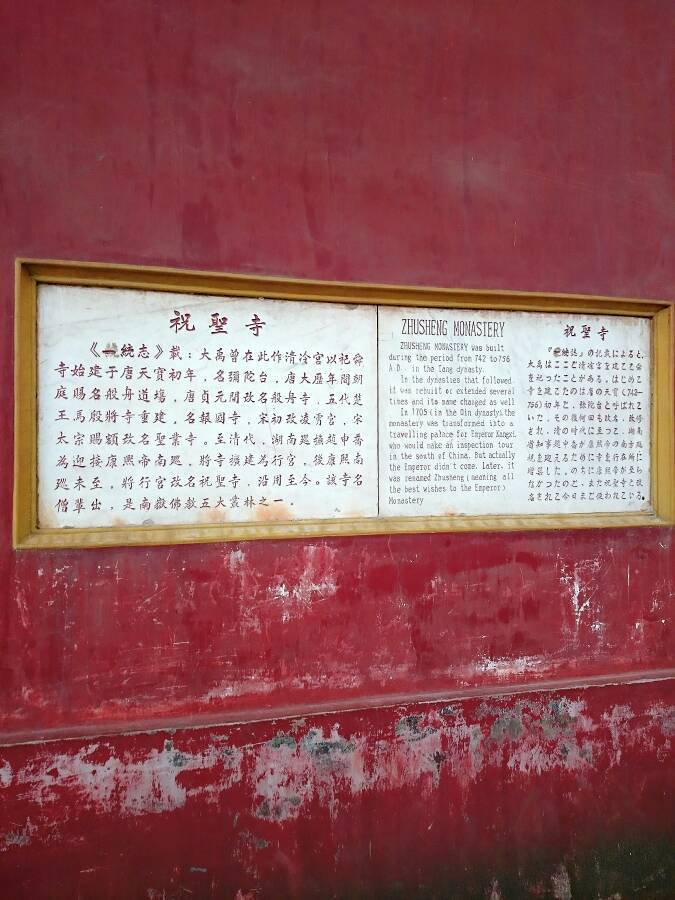 祝聖寺
《一統志》載：大禹曾在此作清冷宮以祀舜
寺始建于唐天寶初年，名彌陀台，唐大歷年間朝
庭賜名般舟道場，唐貞元間改名般舟寺，五代楚
王馬殷將寺重建，名報國寺，宋初改凌霄宮，宋
太宗賜額故名聖業寺。至清代，湖南巡撫趙申喬
為迎接康熙帝南巡，將寺擴建為行宮，後康熙南
巡未至。將行宮改名祝聖寺，沿用至今。該寺名
僧輩出，是南嶽佛教五大叢林之一。
ZHUSHENG MONASTERY
ZHUSHENG MONASTERY was built
during the period from 742 to756
A.D. in the Tang dynasty.
In the dynasties that followed
it was rebuilt or extended several
times and its name changed as well
In 1705(in the Qin dynasty) the
monastery was transformed into a
travelling palace for Emperor Kangxi,
who would make an inspection tour
in the south of China. But actually
the Emperor didn't come. Later, it
was renamed Zhusheng(meaning all
the best wishes to the Emperor)
Monastery
祝聖寺
『一統志』の記載によると、
大禹はここに清冷宮を建てて舜
を祀ったことがある。はじめて
寺を建てたのは唐の天宝(742—
756)初年で、彌陀台と呼ばれて
いた。その後何回も改名、改修
され、清の時代に至って、湖南
省知事趙申喬が康熙帝の南方巡
視を迎えるために寺を行在所に
増築した。のちに康熙帝が来ら
なかったので、また祝聖寺と改
名されて今日まで使われている。